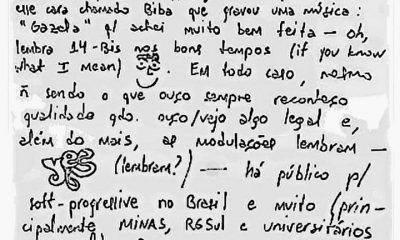 esse cara chamado Biba que gravou uma música:
"Gazela" q/ achei muito bem feita — oh,
lembra 14-Bis nos bons tempos (if you know
what I mean). Em todo caso, mesmo
ñ sendo o que ouço sempre reconheço
qualidade qdo. ouço/vejo algo legal e,
além do mais, as modulações lembram —
Yes (lembram?) — há público p/
soft-progressive no Brasil e muito (prin-
cipalmente, MINAS, RGSul e universitários